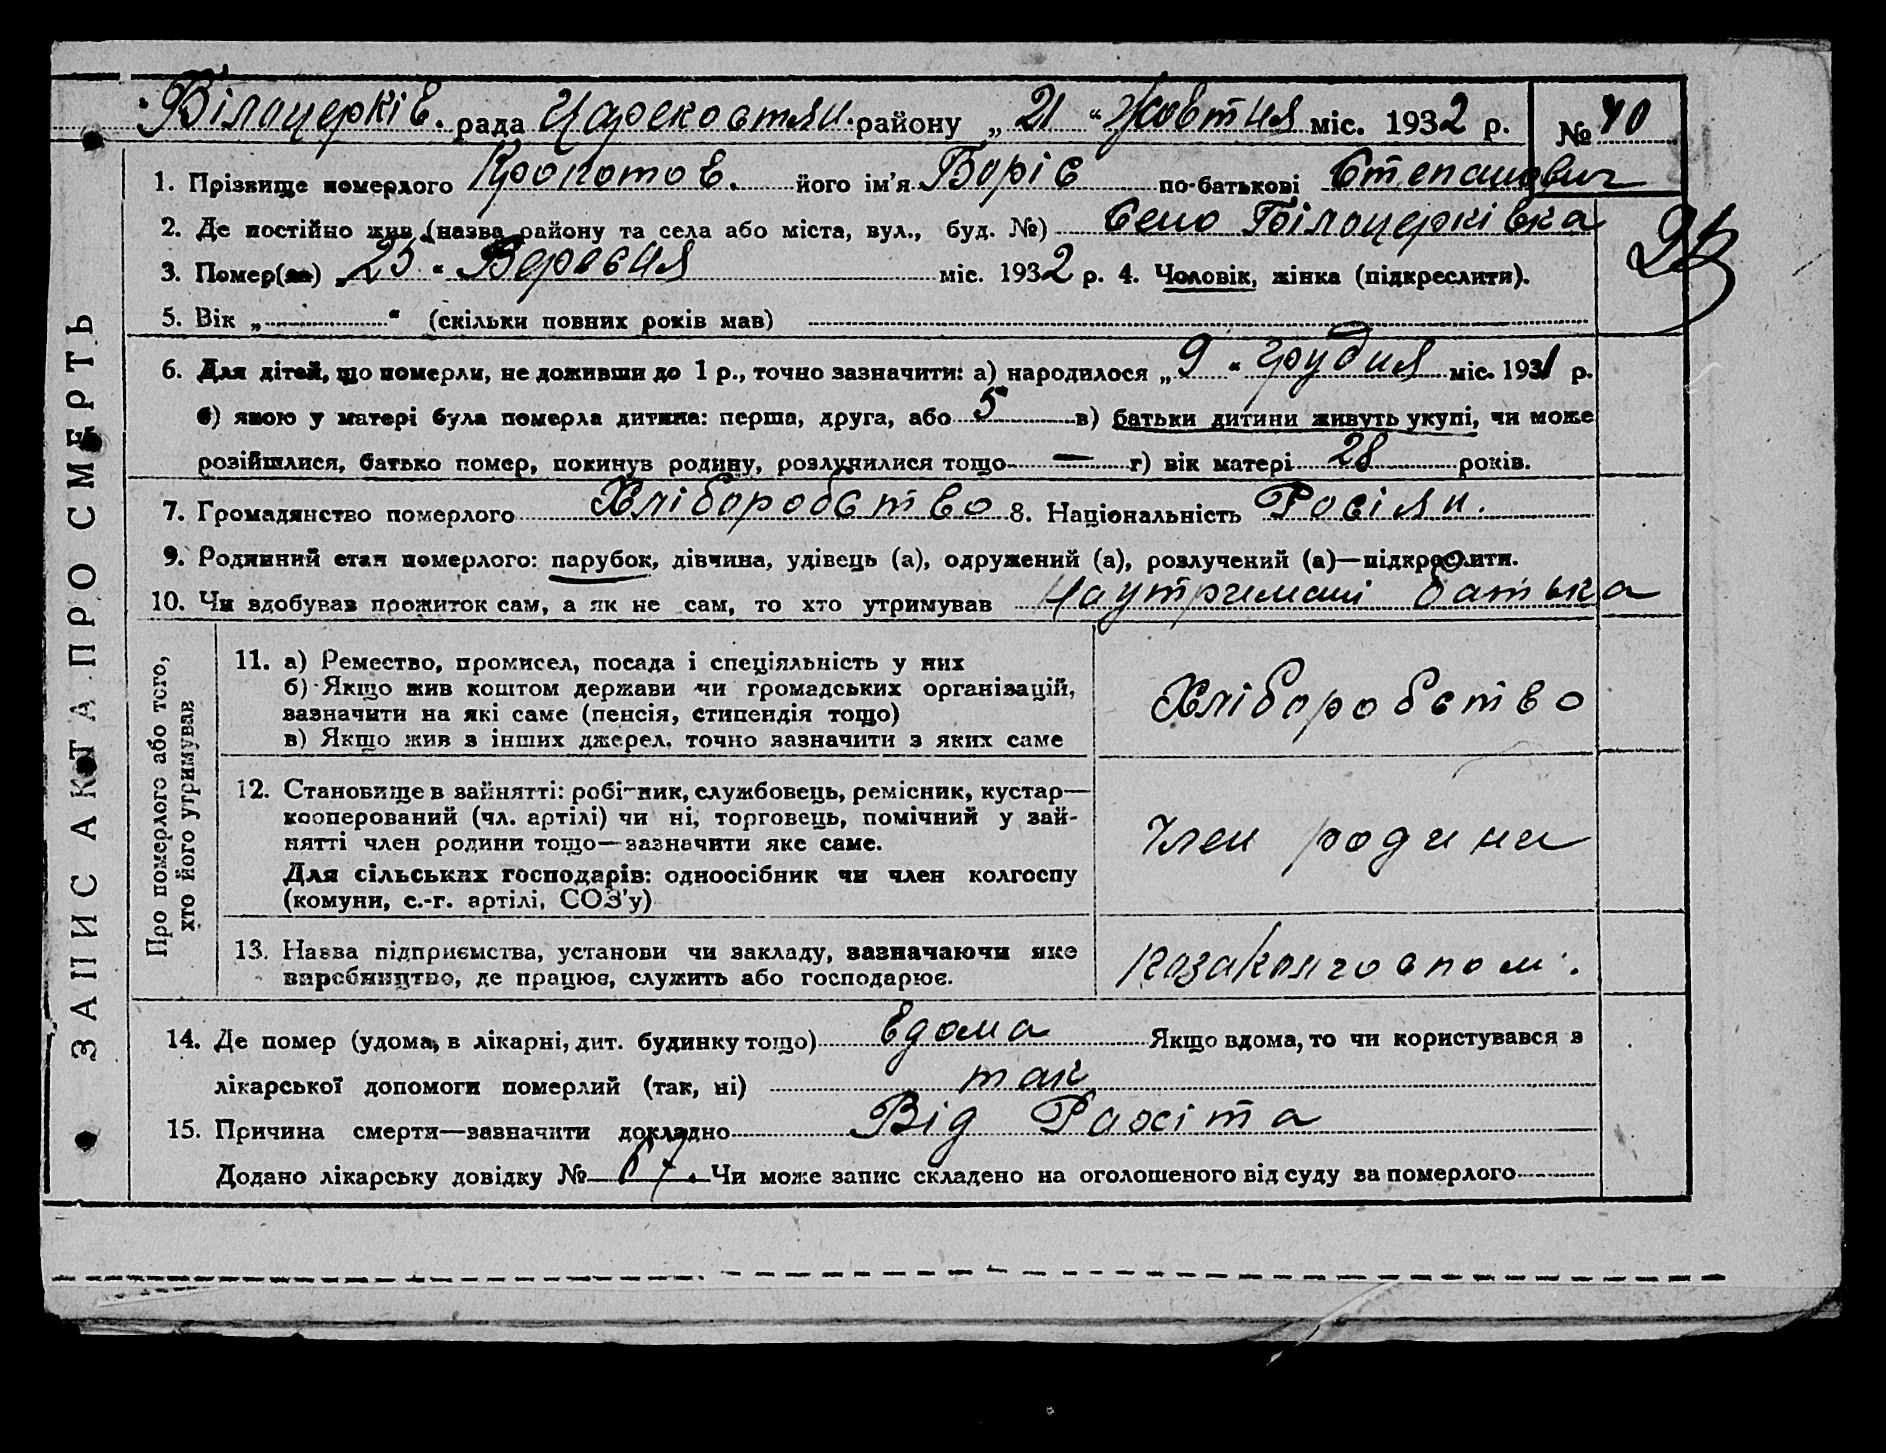 Білоцерків. рада Царекостян. району „ 21 “ Жовтня міс. 1932 р. № 40
1. Прізвище померлого Кропотов. його ім’я Боріс по-батькові Степанович
2. Де постійно жив (назва району та села або міста, вул., буд. №) Село Білоцерківка
3. Помер(ла) „ 25 “ Вересня міс. 1932 р. 4. Чоловік, жінка (підкреслити).
5. Вік „ “ (скільки повних років мав)
6. Для дітей, що померли, не доживши до 1 р., точно зазначити: а) народилося „ 9 “ грудня міс. 1931 р.
б) якою у матері була померла дитина: перша, друга, або 5 в) батьки дитини живуть укупі, чи може
розійшлися, батько помер, покинув родину, розлучилися тощо — г) вік матері 28 років.
7. Громадянство померлого Хліборобство 8. Національність Росіян.
9. Родинний стан померлого: парубок, дівчина, удівець (а), одружений (а), розлучений (а)—підкреслити.
10. Чи здобував прожиток сам, а як не сам, то хто утримував На утриманні батька
ЗАПИС АКТА ПРО СМЕРТЬ
Про померлого або того,
хто його утримував
11. а) Ремество, промисел, посада і спеціяльність у них
б) Якщо жив коштом держави чи громадських організацій,
зазначити на які саме (пенсія, стипендія тощо)
в) Якщо жив з інших джерел, точно зазначити з яких саме
Хліборобство
12. Становище в зайнятті: робітник, службовець, ремісник, кустар—
кооперований (чл. артілі) чи ні, торговець, помічний у зай-
нятті член родини тощо—зазначити яке саме.
Для сільських господарів: одноосібник чи член колгоспу
(комуни, с.-г. артілі, СОЗ’у)
Член родини
13. Назва підприємства, установи чи закладу, зазначаючи яке
виробництво, де працює, служить або господарює.
14. Де помер (удома, в лікарні, дит. будинку тощо) Вдома Якщо вдома, то чи користувався з
лікарської допомоги померлий (так, ні) так
15. Причина смерти—зазначити докладно Від Рахіта
Додано лікарську довідку № 67. Чи може запис складено на оголошеного від суду за померлого